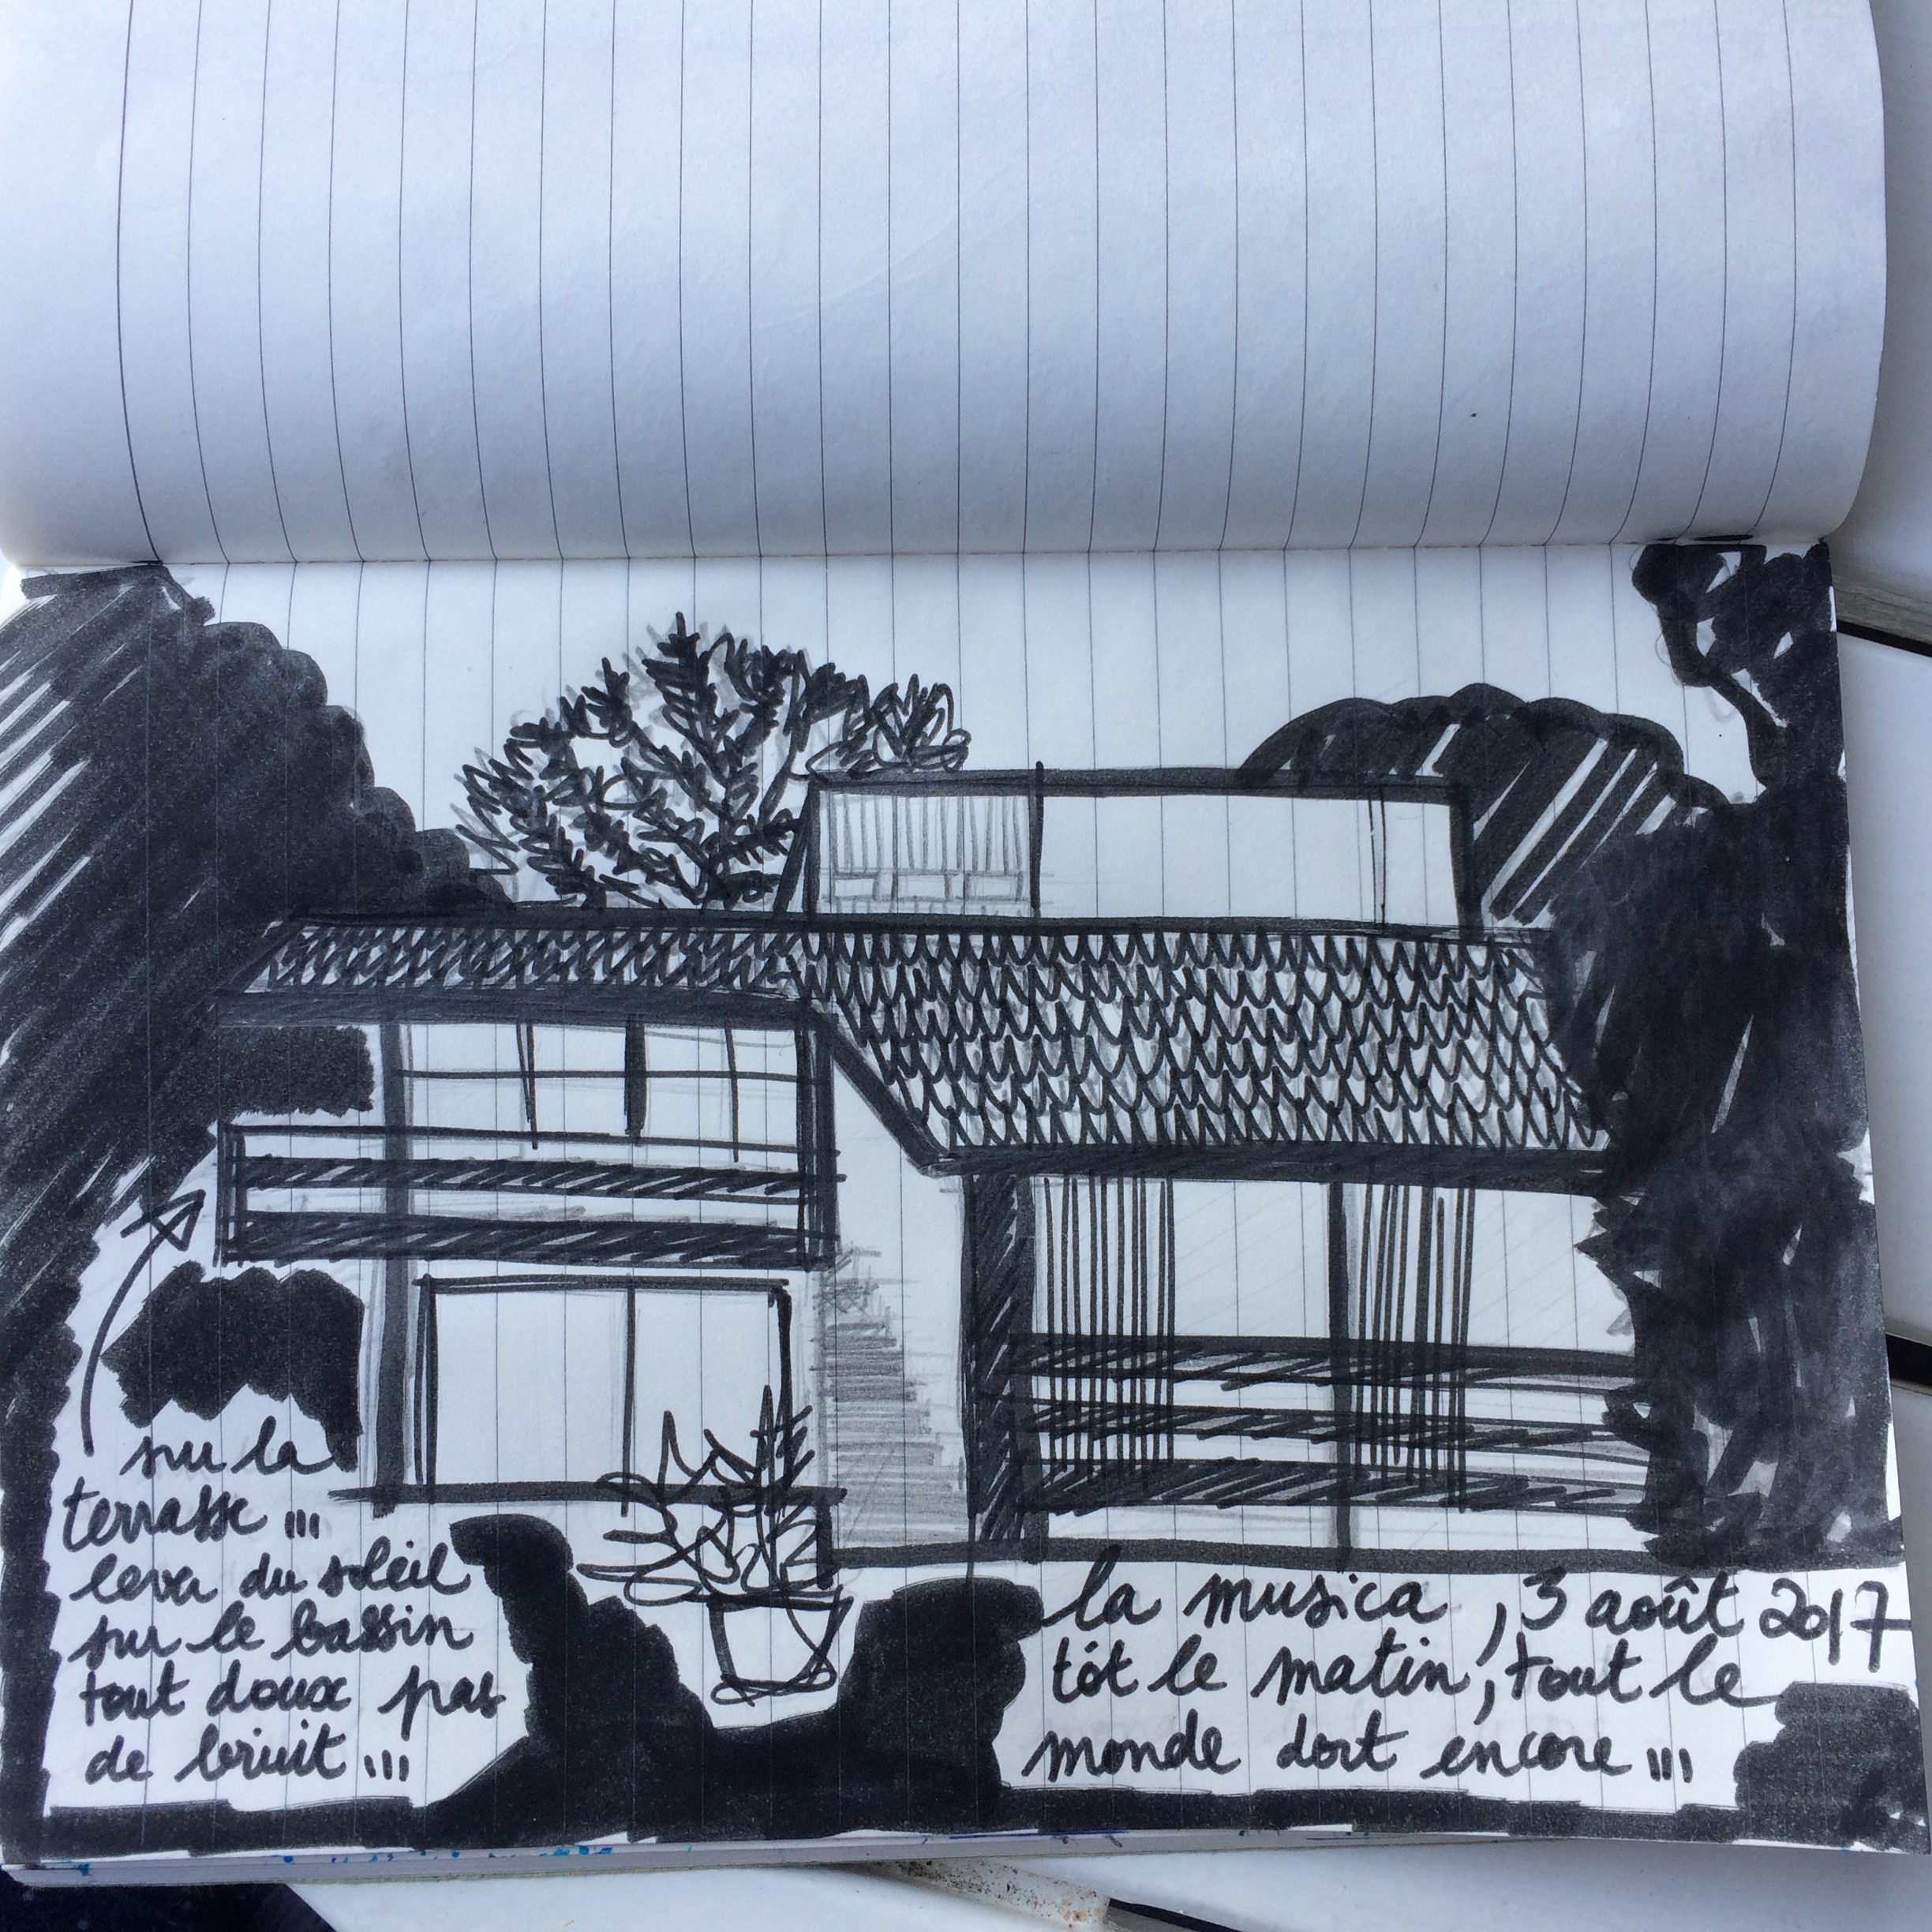 sur la
terrasse ...
lever du soleil
sur le bassin
tout doux pas
de bruit ...
la musica, 3 août 2017
tôt le matin, tout le
monde dort encore ...